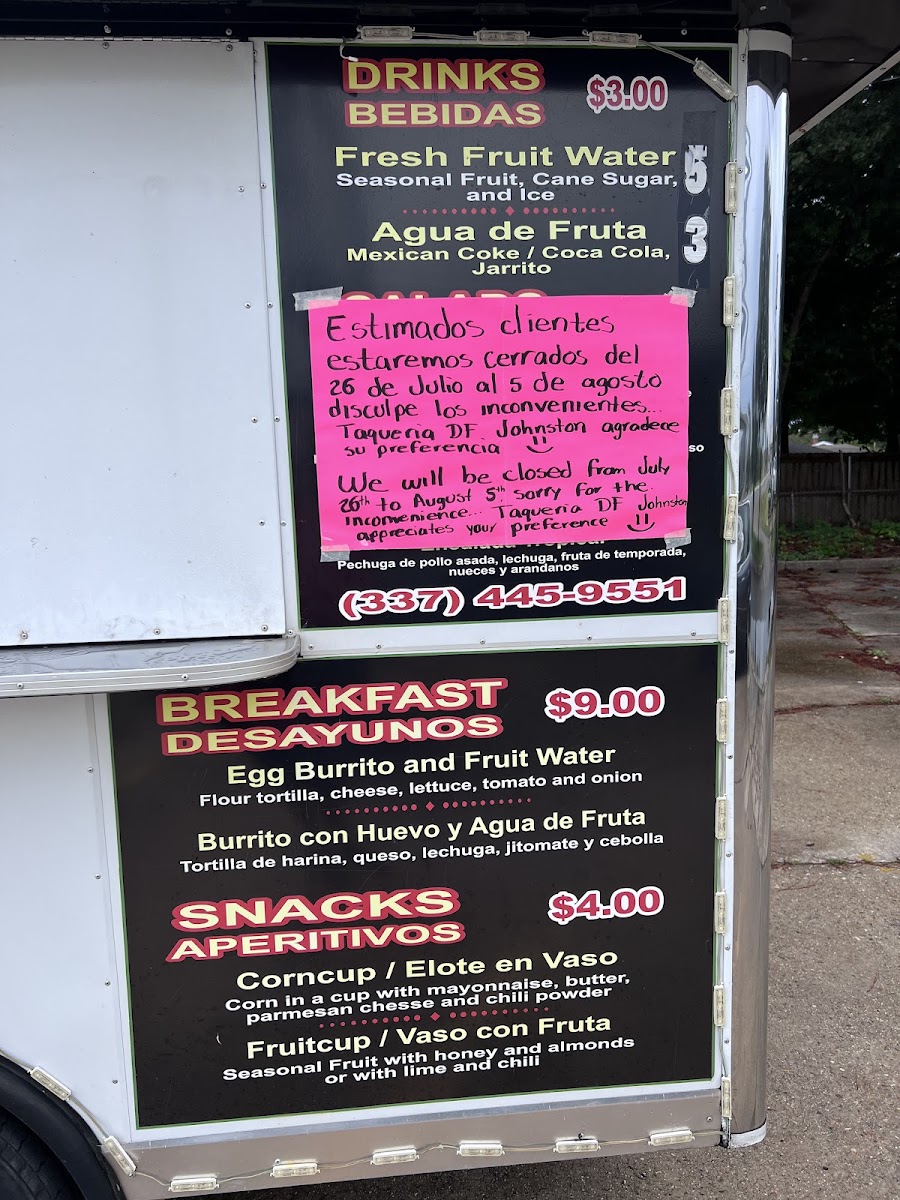 DRINKS $3.00
BEBIDAS
Fresh Fruit Water 5
Seasonal Fruit, Cane Sugar,
and Ice
Agua de Fruta 3
Mexican Coke / Coca Cola,
Jarrito
Estimados clientes
estaremos cerrados del
26 de Julio al 5 de agosto
disculpe los inconvenientes...
Taqueria DF. Johnston agradece
su preferencia
so
We will be closed from July
26th to August 5th sorry for the
inconvenience... Taqueria DF Johnston
appreciates your preference
Pechuga de pollo asada, lechuga, fruta de temporada,
nueces y arandanos
(337) 445-9551
BREAKFAST $9.00
DESAYUNOS
Egg Burrito and Fruit Water
Flour tortilla, cheese, lettuce, tomato and onion
Burrito con Huevo y Agua de Fruta
Tortilla de harina, queso, lechuga, jitomate y cebolla
SNACKS $4.00
APERITIVOS
Corncup / Elote en Vaso
Corn in a cup with mayonnaise, butter,
parmesan chesse and chili powder
Fruitcup / Vaso con Fruta
Seasonal Fruit with honey and almonds
or with lime and chili